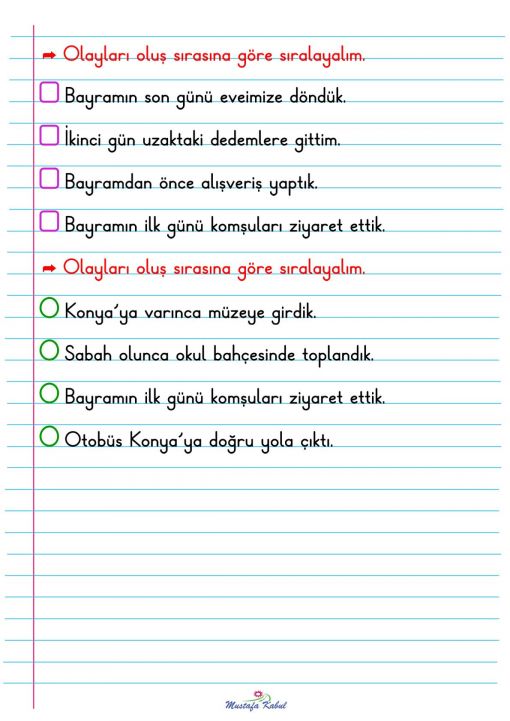 ➡ Olayları oluş sırasına göre sıralayalım.
Bayramın son günü eveimize döndük.
İkinci gün uzaktaki dedemlere gittim.
Bayramdan önce alışveriş yaptık.
Bayramın ilk günü komşuları ziyaret ettik.
➡ Olayları oluş sırasına göre sıralayalım.
Konya'ya varınca müzeye girdik.
Sabah olunca okul bahçesinde toplandık.
Bayramın ilk günü komşuları ziyaret ettik.
Otobüs Konya'ya doğru yola çıktı.
Mustafa Kabul